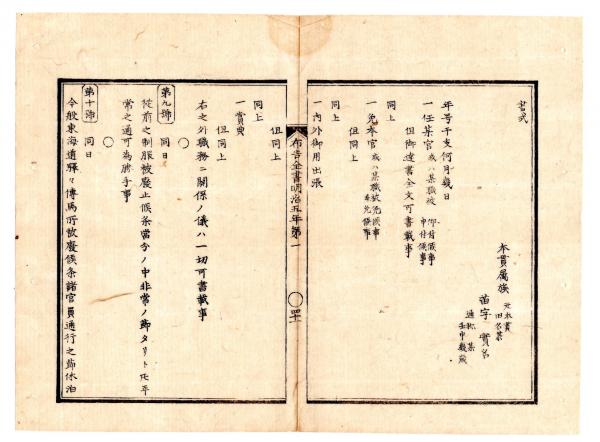 書式
本貫属族
元本貫
旧名某
苗字 實名
通称 某
壬申幾歳
年号干支何月幾日
一任某官 或ハ某職被 仰付候事
申付候事
但御達書全文可書載事
同上
一免本官 或ハ某職被免候事
但同上
同上
一内外御用出張
但同上
布告全書明治五年第一
同上
一賞典
但同上
右之外職務ニ關係ノ儀ハ一切可書載事
○
第九號 同日
従前之制服被廢止候条當分ノ中非常ノ節タリトモ平
常之通可為勝手事
○
第十號 同日
今般東海道驛々傳馬所被廢候条諸官員通行之節休泊